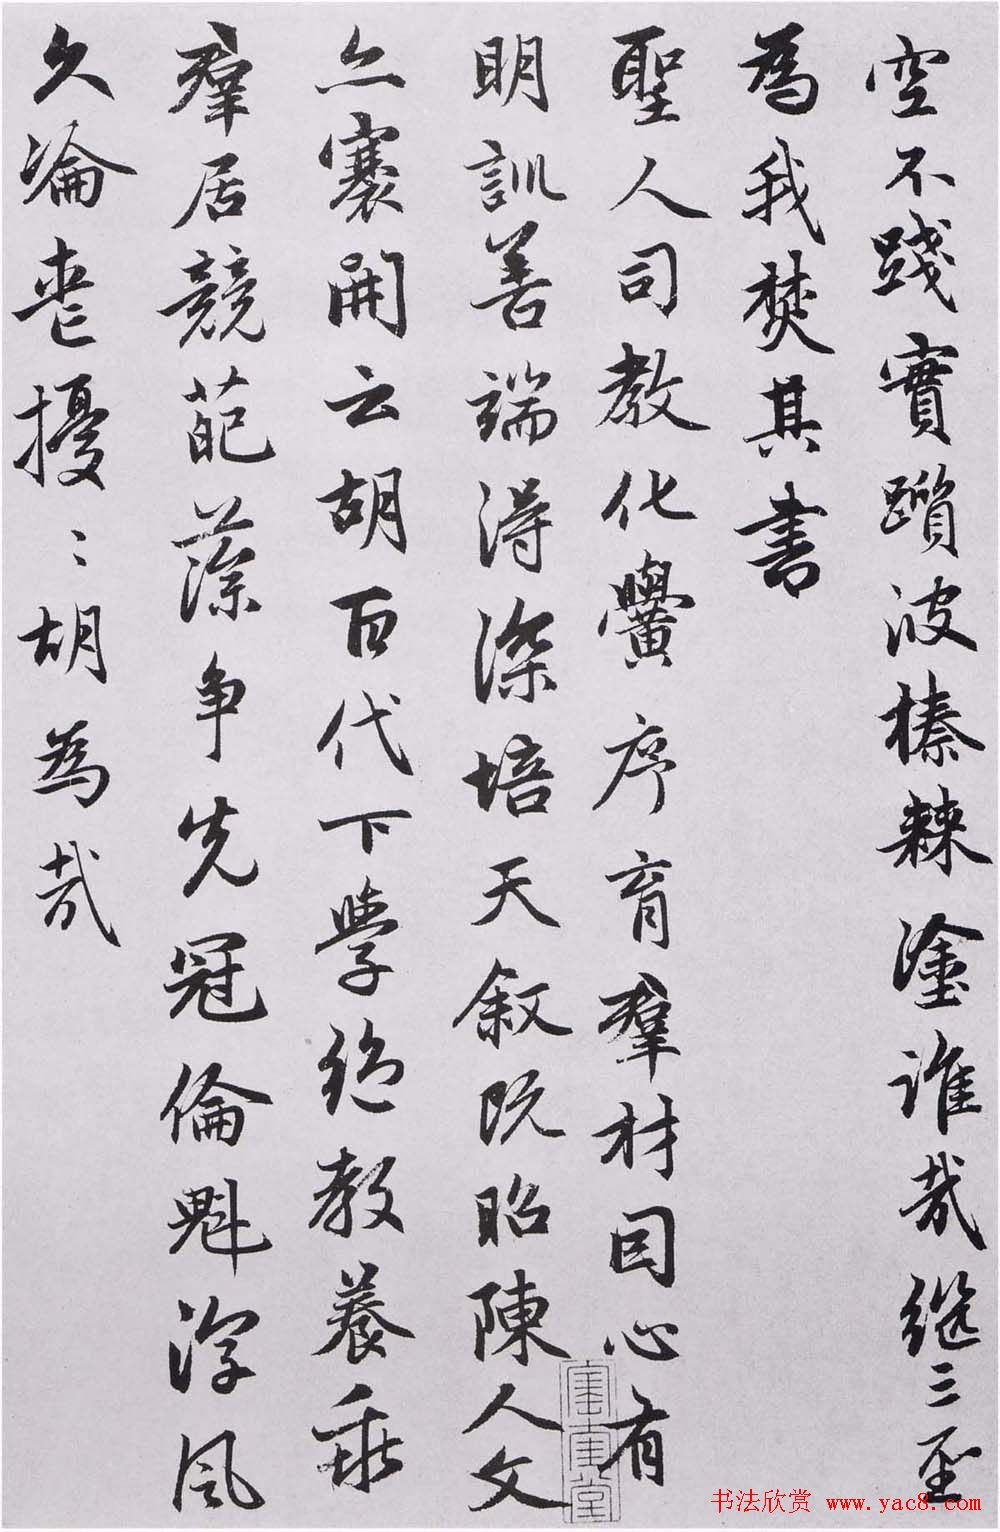 空不踐實躓彼榛棘塗誰哉繼三聖
為我焚其書
聖人司教化黌序育羣材因心有
明訓善端得深培天叙既昭陳人文
亦褰開云胡百代下學絕教養乖
羣居競葩藻爭先冠倫魁淳風
久淪喪擾〻胡為哉
书法欣赏 www.yac8.com